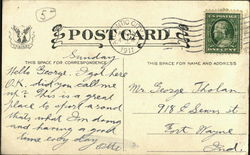 5
ANTIC CITY
1911
POST CARD
THIS SPACE FOR CORRESPONDENCE
THIS SPACE FOR NAME AND ADDRESS
Sunday
Hello George. I got here
O.K. did you call me
up? This is a great
place to sport around
thats what I'm doing
and having a good
time every day
Mr George Tholan
918 E Lewis St
Fort Wayne
Ind.